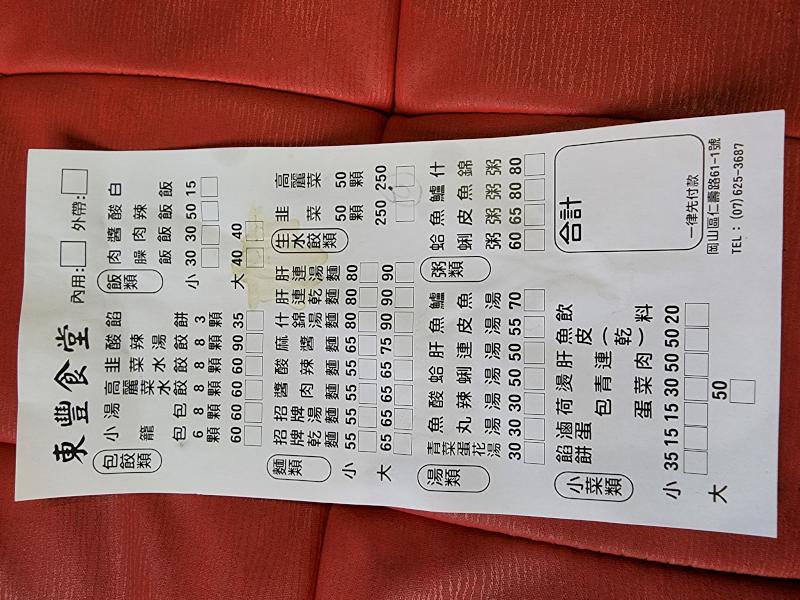 東豐食堂
內用:
外帶:
包餃類
小籠包 6顆 60
湯包 8顆 60
高麗菜水餃 8顆 60
韭菜水餃 8顆 60
酸辣湯餃 8顆 90
餡餅 3顆 35
飯類
小 大
肉臊飯 30 40
醬肉飯 30 40
酸辣飯 50
白飯 15
麵類
小 大
招牌乾麵 55 65
招牌湯麵 55 65
醬肉麵 55 65
酸辣麵
麻醬麵
什錦湯麵
肝連乾麵 80 90
肝連湯麵 80 90
生水餃類
韭菜 50顆 250
高麗菜 50顆 250
湯類
青菜蛋花湯 30
魚丸湯 30
酸辣湯 50
蛤蜊湯 50
肝連湯 50
魚皮湯 55
鱸魚湯 70
粥類
蛤蜊粥 60
魚皮粥 65
鱸魚粥 80
什錦粥 80
小菜類
小 大
餡餅 35
滷蛋 15
荷包蛋 15
燙青菜 30 50
肝連肉 50
魚皮(乾) 50
飲料 20
合計
一律先付款
岡山區仁壽路61-1號
TEL：(07)625-3687